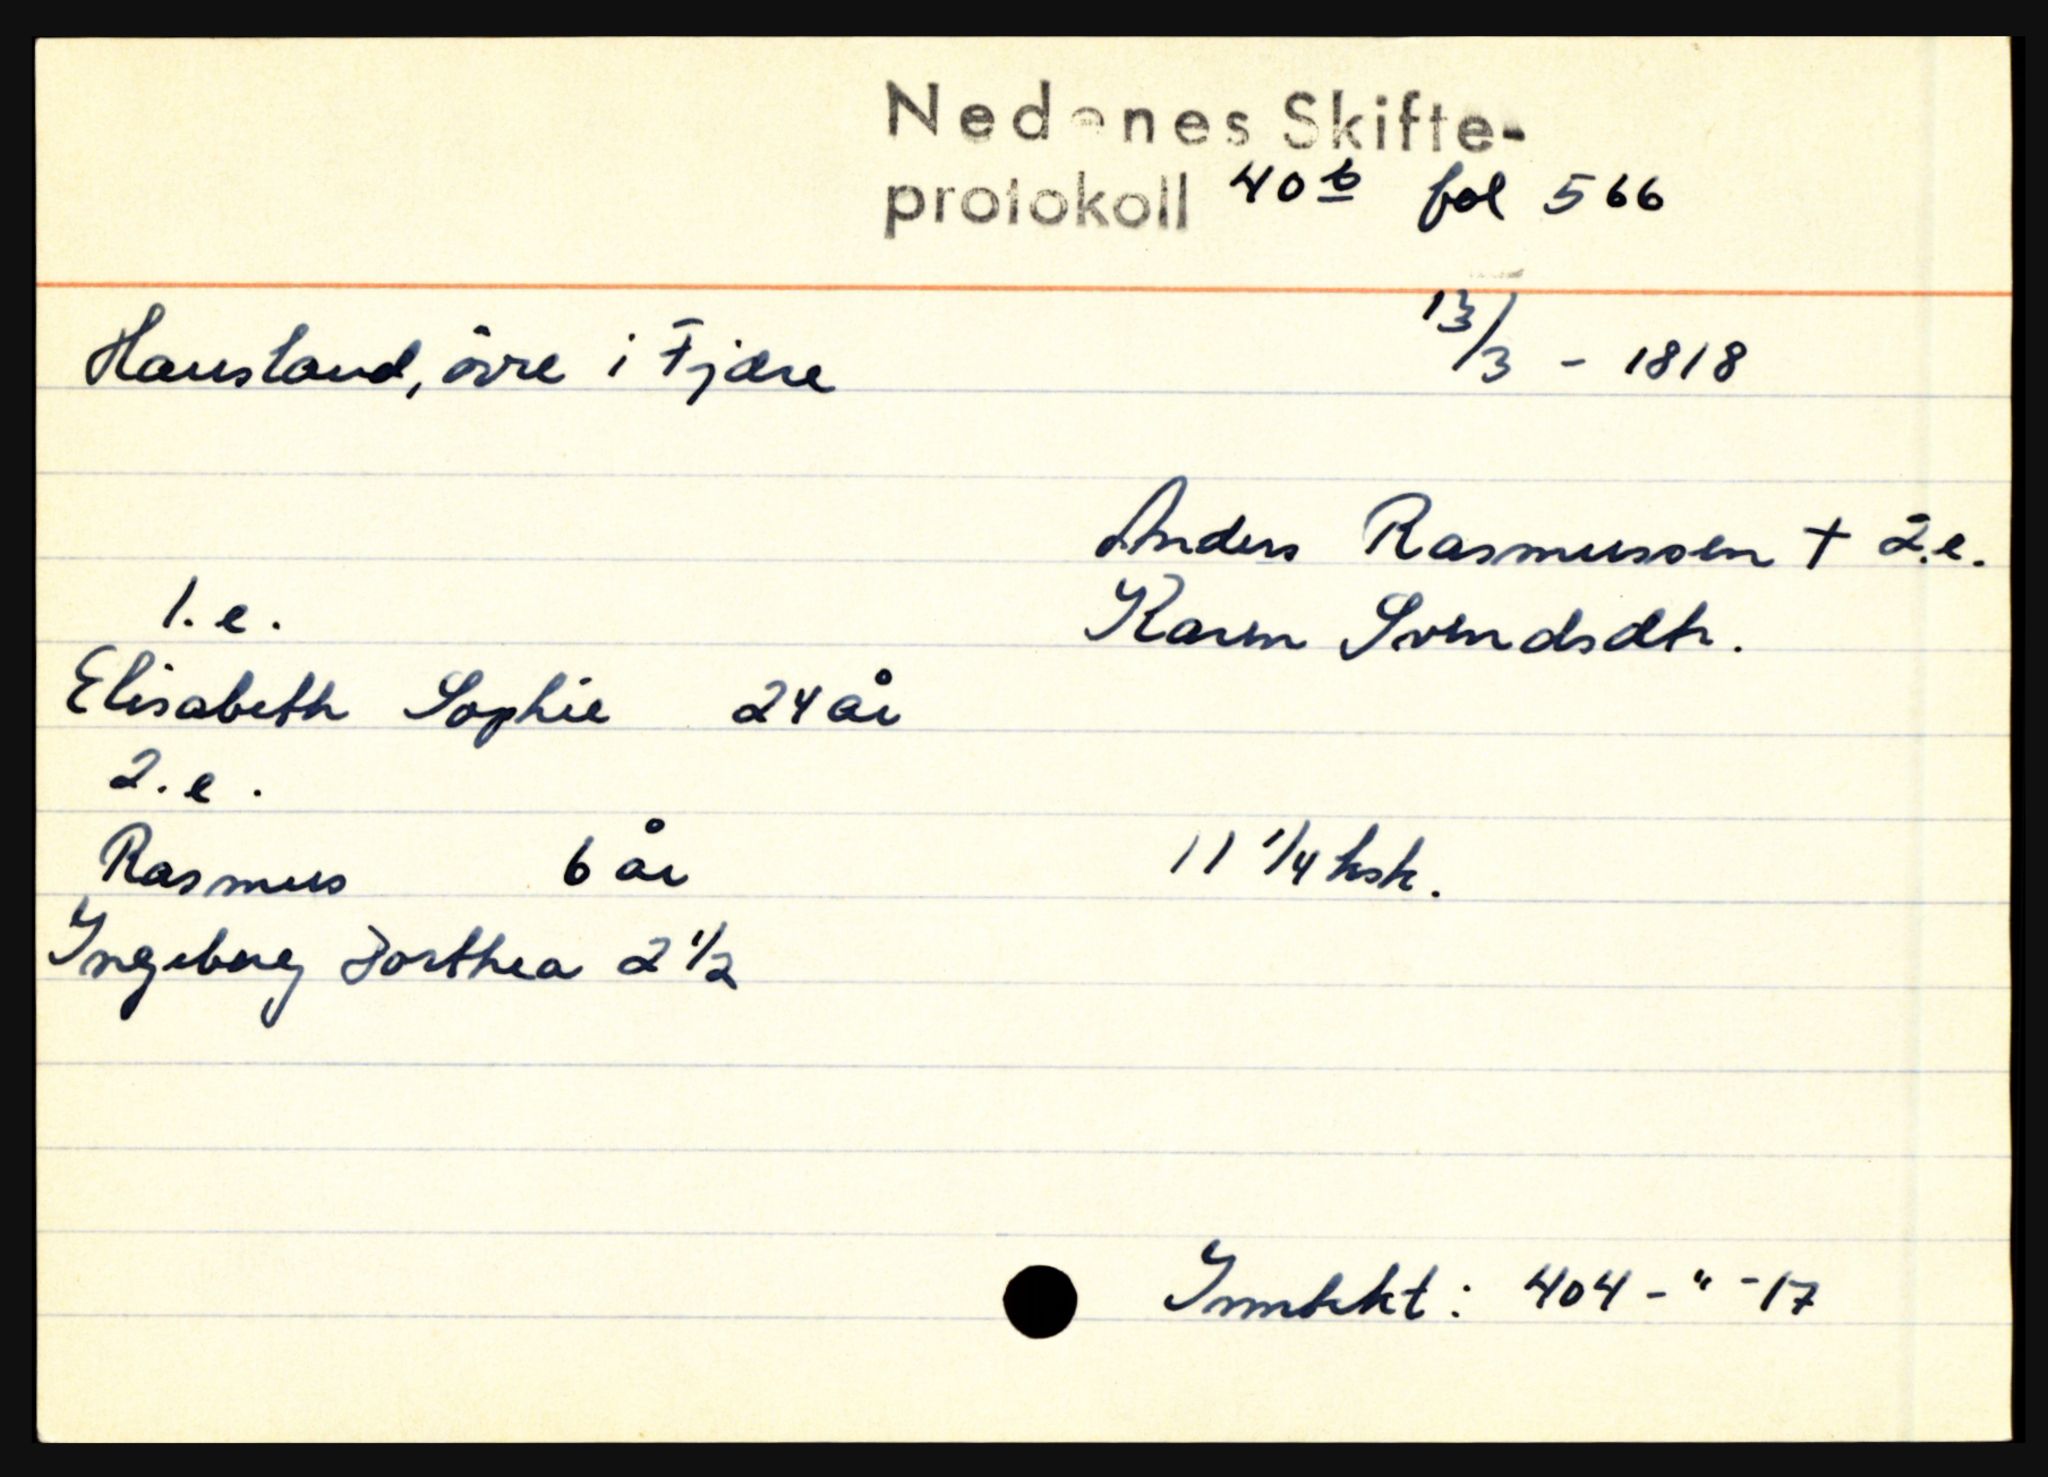 Nedenes Skifte-
protokoll 40 b fol 566
Hausland, övre i Fjære 13/3 - 1818
Anders Rasmussen † 2.e.
1.e. Karen Svendsdtr.
Elisabeth Sophie 24 år
2.e.
Rasmus 6 år 11 1/4 ksk.
Ingeborg Dorthea 2 1/2
Inntekt: 404 - " - 17